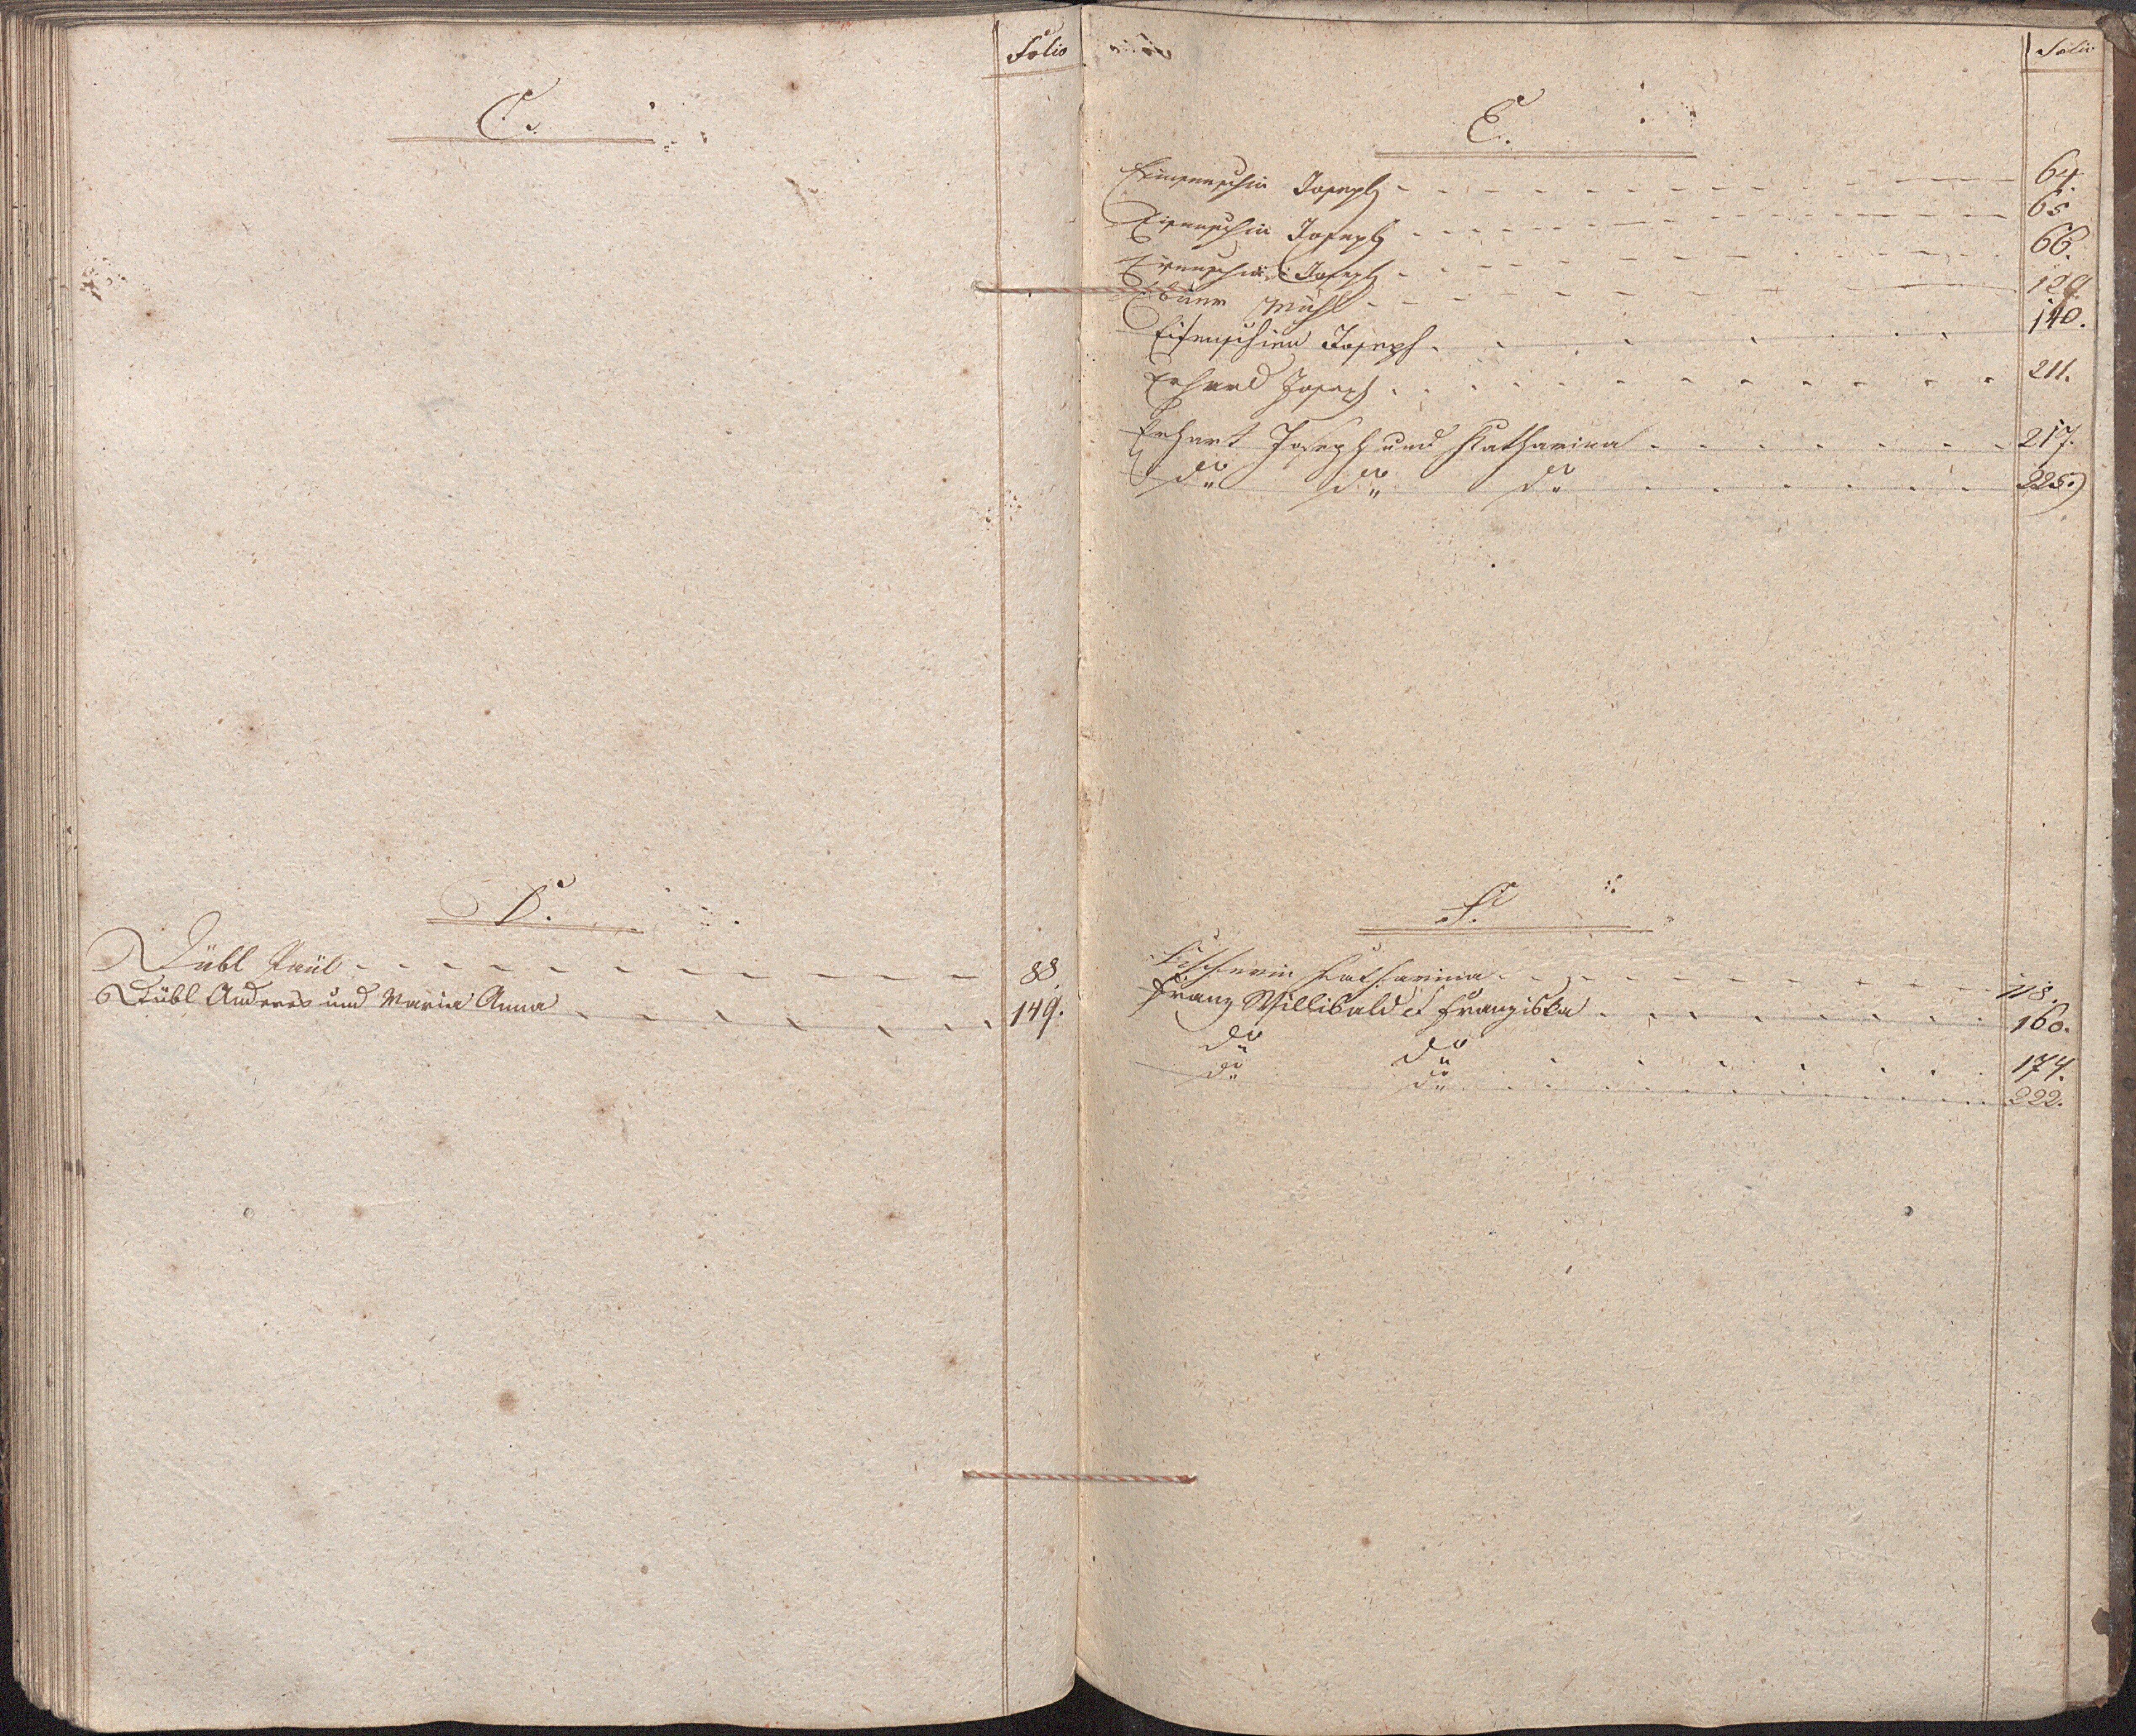 Folio
C.
D.
Dübl Paul 88.
Dübl Andreas und Maria Anna 149.
Folio
E.
Joseph 64.
Eisenschin Joseph 65
Eisenschin Joseph 66.
Mühl
Eisenschien Joseph 140.
Erhard Joseph 211.
Erhart Joseph und Katharina 217.
do do do 225.
F.
Fischerin Katharina 118.
Franz Willibald et Franziska 160.
do do 174.
do do 222.